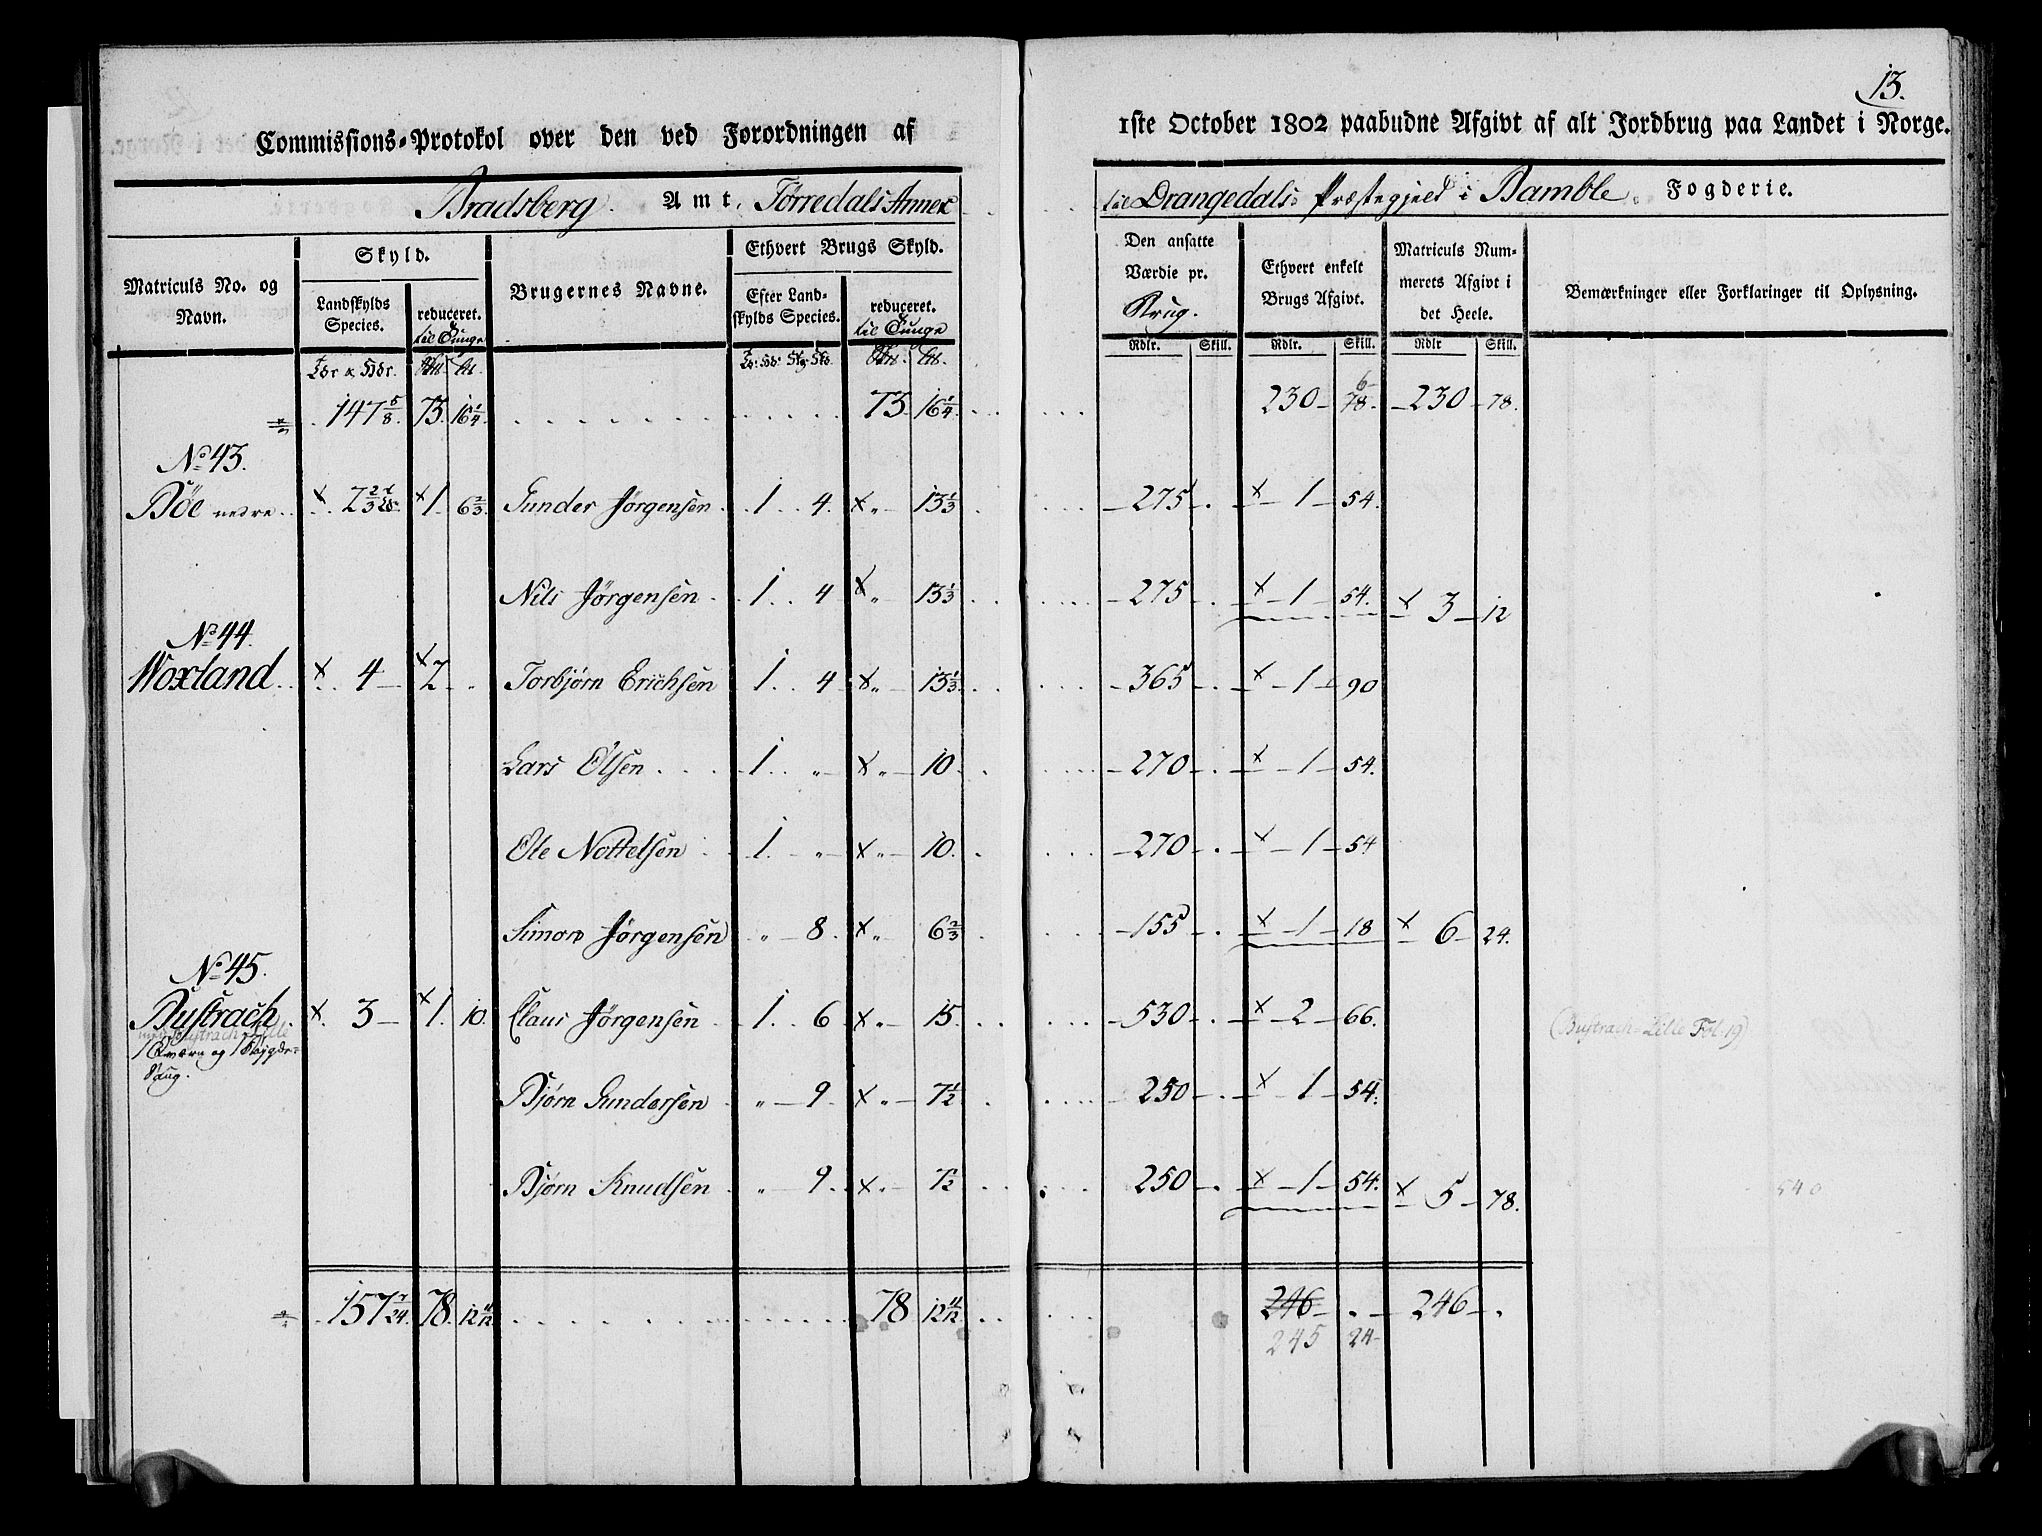 13.
Commissions-Protokol over den ved Forordningen af 1ste October 1802 paabudne Afgivt af alt Jordbrug paa Landet i Norge.
Bradsberg Amt, Tørredals Annex til Drangedals Præstegjeld i Bamble Fogderie.
Matriculs No. og Navn. Skyld. Brugernes Navne. Ethvert Brugs Skyld. Den ansatte Værdie pr. Brug. Ethvert enkelt Brugs Afgivt. Matriculs Nummerets Afgivt i det Heele. Bemærkninger eller Forklaringer til Oplysning.
Landskylds Species. reduceret. til Tunge Efter Landskylds Species. reduceret. til Tunge
Rdlr. Skill. Rdlr. Skill. Rdlr Skill.
147 5/8. 73. 16 1/4. 73 16 1/4. 230 6 78. 230 78.
No 43.
Böe nedre 2 2/3 1 6 2/3 Gunder Jørgensen 1 4 " 13 1/3 275 1 54.
Nils Jørgensen 1 4 " 13 1/3 275 1 54. 3 12
No 44.
Woxland 4 2 Torbjørn Erichsen 1 4 " 13 1/3 365 1 90
Lars Olsen 1 " " 10 270 1 54.
Ole Nottelsen 1 " " 10. 270 1 54
Simon Jørgensen " 8. " 6 2/3 155 1 18 6 24.
No 45.
Bustrach 3 1. 10. Claus Jørgensen 1 6 " 15. 530 2 66. (Bustrach Lille Fol. 19)
med Bustrach Lille
1 Qværn og 1 Bøygde-
Saug.
Bjørn Gundersen " 9 " 7 1/2 250 1 54.
Bjørn Knudsen " 9 " 7 1/2 250 1 54. 5 78. 540
157 7/24. 78. 12 11/12. 78 12 11/12 246 246
245 24